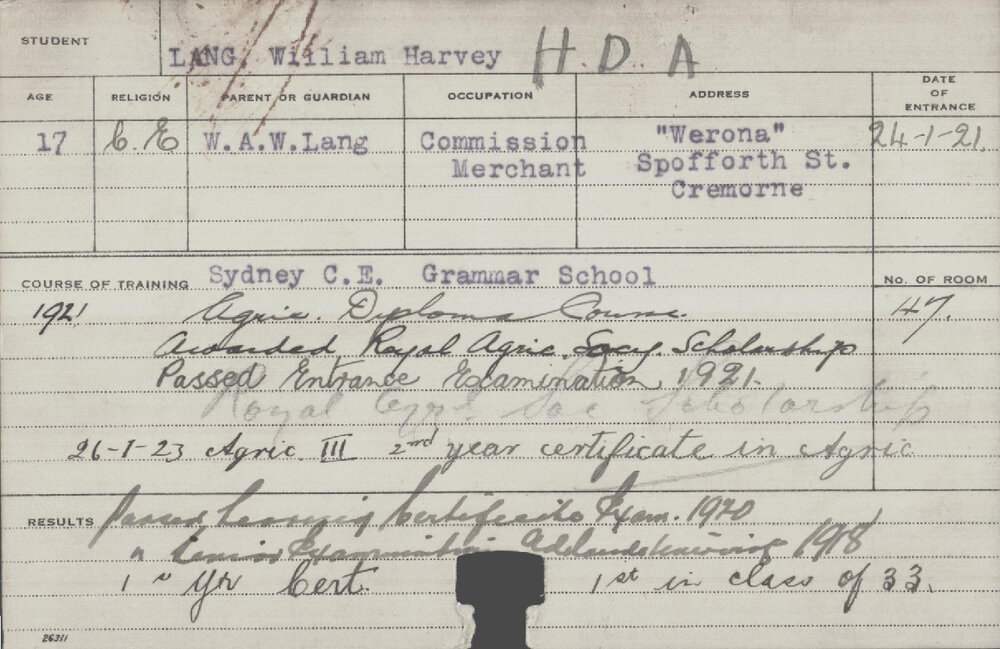 STUDENT LANG, William Harvey H.D.A
AGE RELIGION PARENT OR GUARDIAN OCCUPATION ADDRESS DATE OF ENTRANCE
17 C.E W.A.W.Lang Commission "Werona" 24-1-21.
Merchant Spofforth St.
Cremorne
COURSE OF TRAINING Sydney C.E. Grammar School No. OF ROOM
1921 Agric. Diploma Course. 47.
Awarded Royal Agric. Socy. Scholarship
Passed Entrance Examination 1921.
Royal Agri. Soc Scholarship
26-1-23 Agric. III 2nd year certificate in Agric
RESULTS Passed Leaving Certificate Exam. 1920
" Examination 1918
1st Yr Cert. 1st in class of 33.
26311